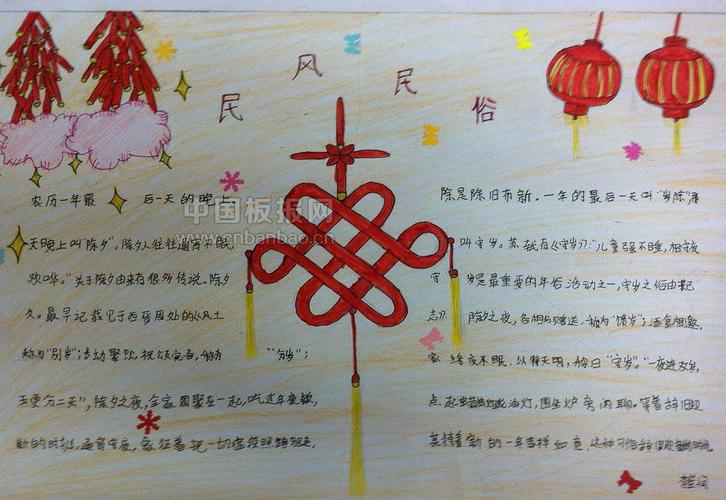 民风民俗
农历一年最后一天的晚上
天晚上叫"除夕"。除夕人往往通宵不眠,
欢哗。"关于除夕由来有很多传说。除夕
久。最早记载见于西晋周处的《风土
称为"别岁";
五更分二天",除夕之夜,全家团聚在一起,吃过年夜饭,
新的时刻,通宵守夜,象征着把一切
除是除旧布新。一年的最后一天叫"岁除",
叫守岁。苏轼有《守岁》:"儿童强不睡,相守夜
守岁是最重要的年俗活动之一,守岁之俗由来
志》:除夕之夜,各相与赠送,称为"馈岁";
终夜不眠,以待天明,称曰"守岁"。"一夜连双岁,
点起蜡烛或油灯,围坐炉旁闲聊。等着辞旧迎
新的一年吉祥如意,这种习俗
中国板报网
www.cnbanbao.cn